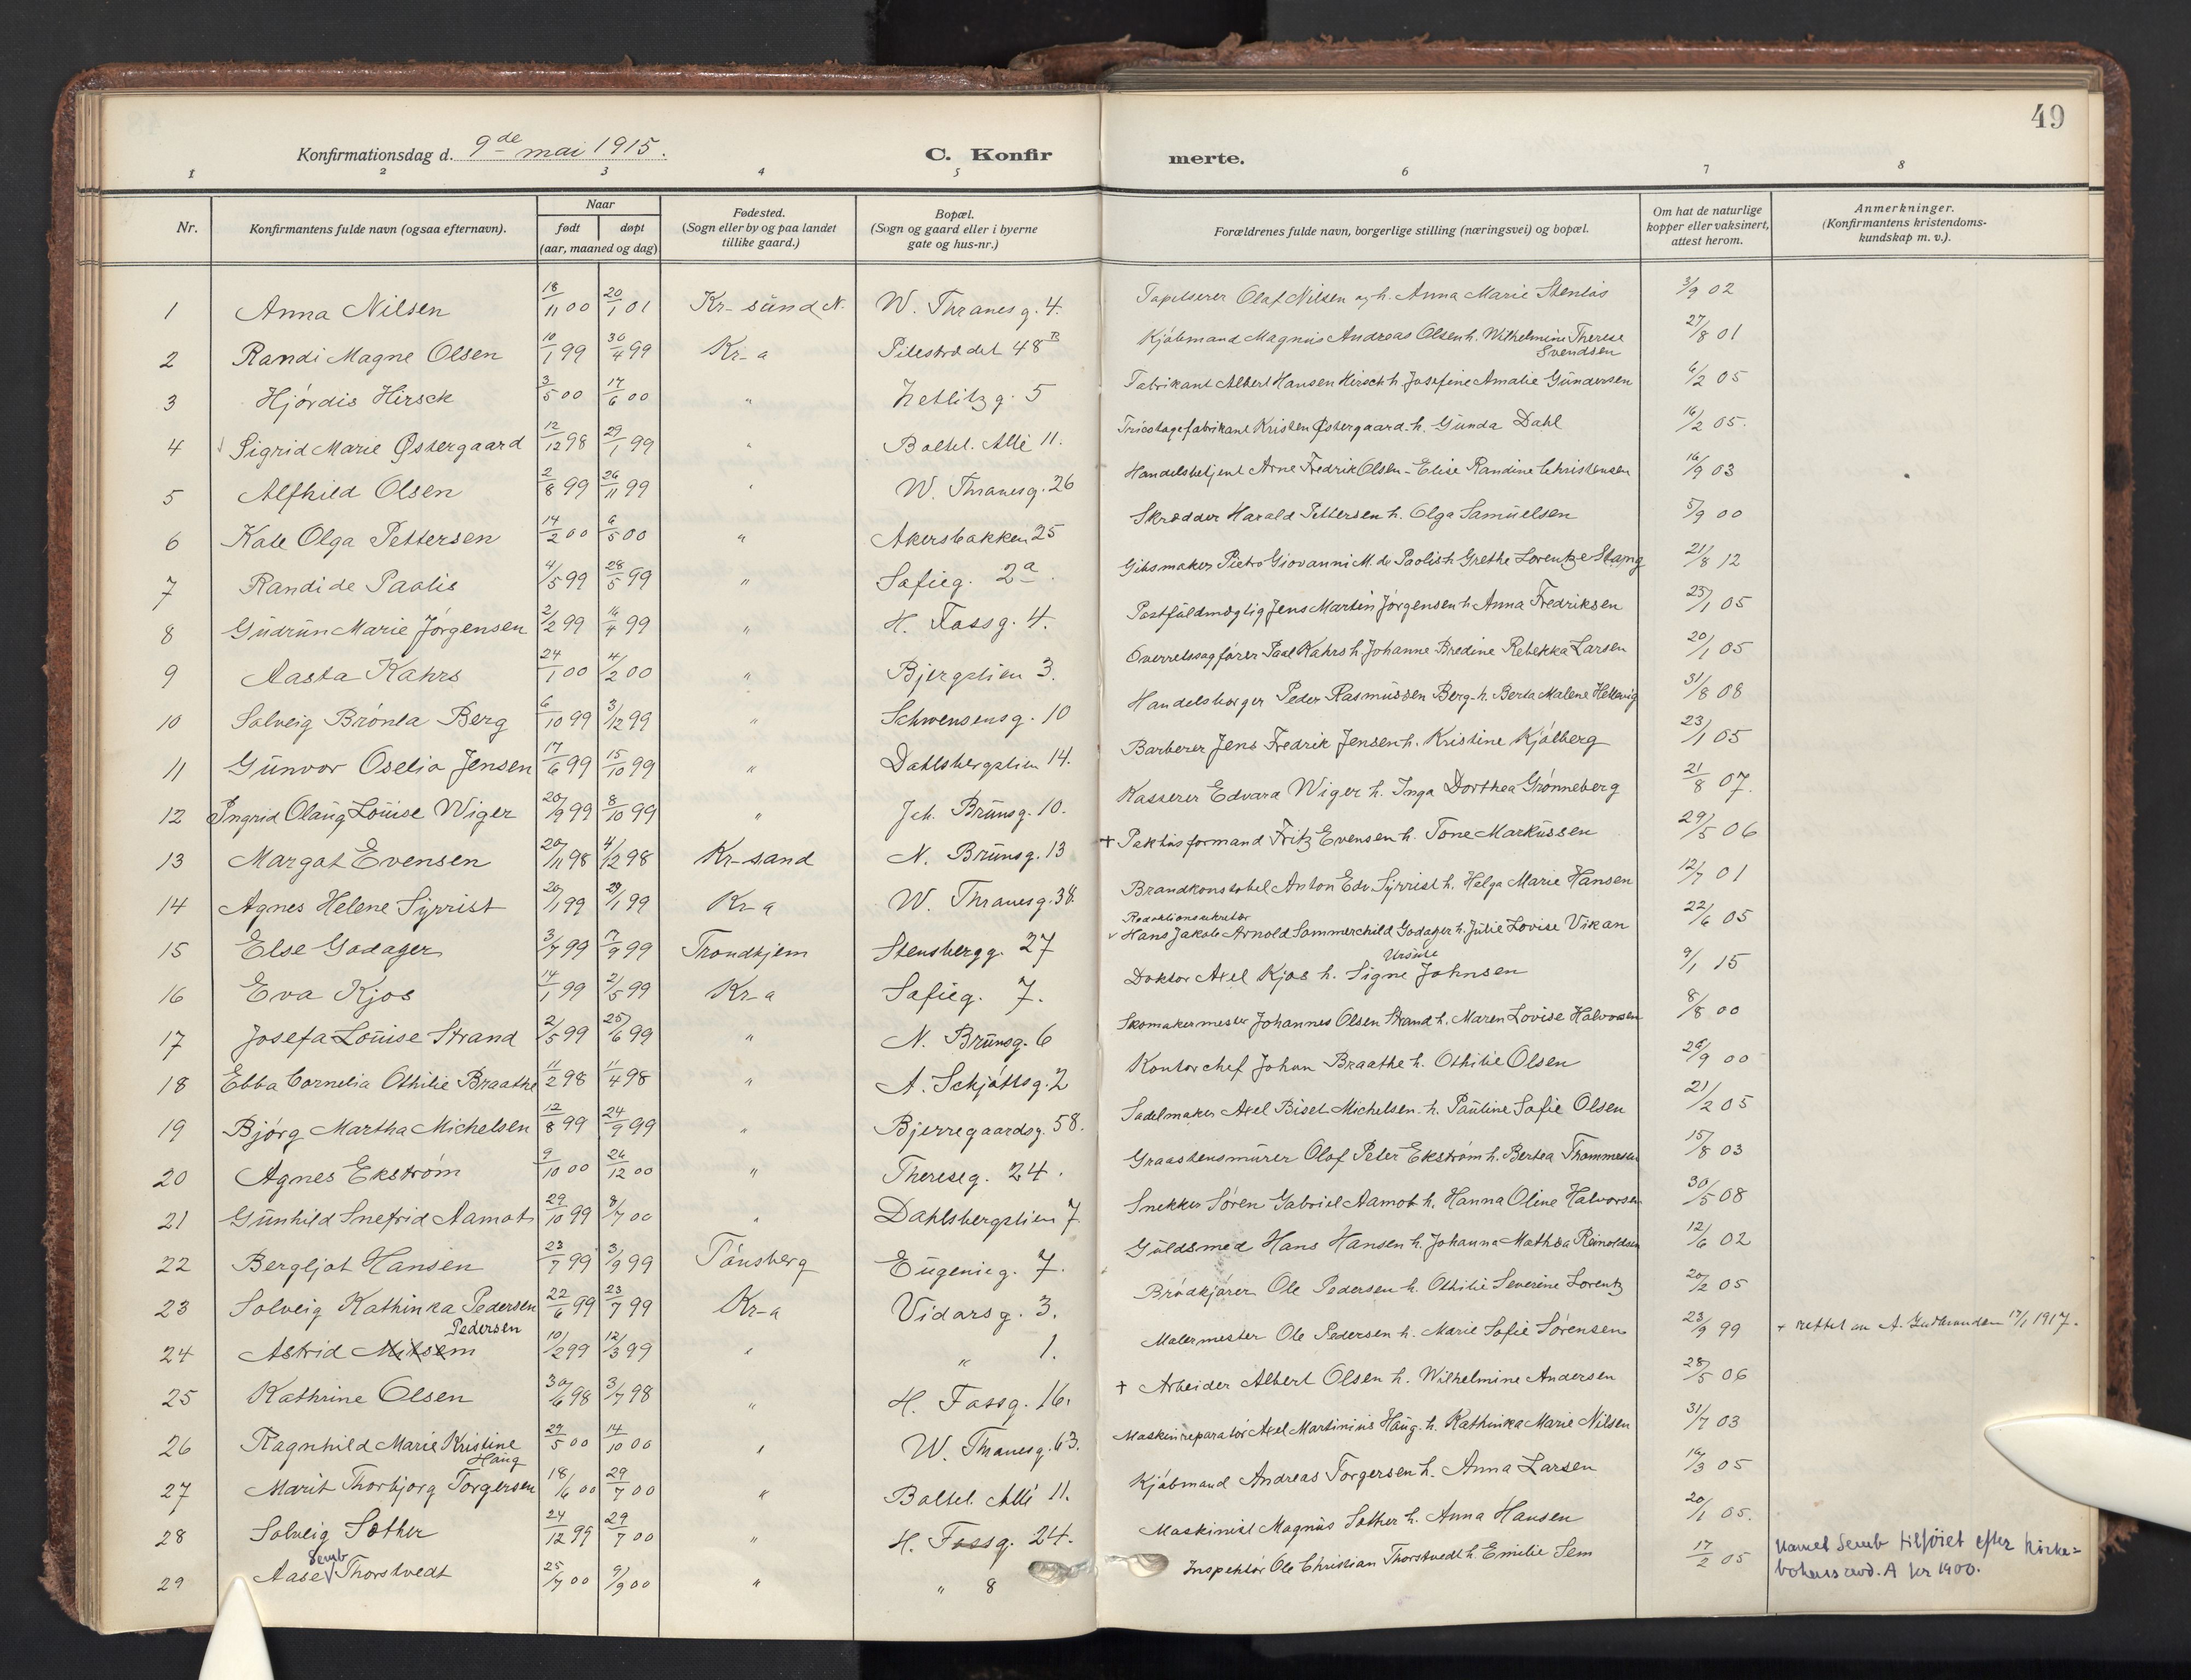 49
Konfirmationsdag d. 9de mai 1915. C. Konfirmerte.
1 2 3 4 5 6 7 8
Nr. Konfirmantens fulde navn (ogsaa efternavn). Naar født døpt (aar, maaned og dag) Fødested. (Sogn eller by og paa landet tillike gaard.) Bopæl. (Sogn og gaard eller i byerne gate og hus-nr.) Forældrenes fulde navn, borgerlige stilling (næringsvei) og bopæl. Om hat de naturlige kopper eller vaksinert, attest herom. Anmerkninger. (Konfirmantens kristendoms-kundskap m. v.).
1 Anna Nilsen 18/11 00 20/1 01 Kr-sund N. W. Thranesg. 4. Tapetserer Olaf Nilsen og h. Anna Marie Stenläs 3/9 02
2 Randi Magne Olsen 10/1 99 30/4 99 Kr-a Pilestrædet 48B Kjøbmand Magnus Andreas Olsen h. Wilhelmine Therese Svendsen 27/8 01
3 Hjørdis Hirsch 3/5 00 17/6 00 " Zetlitzg. 5 Fabrikant Albert Hansen Hirsch h. Josefine Amalie Gundersen 6/2 05
4 Sigrid Marie Østergaard 12/12 98 29/1 99 " Boltel. Allé 11. Tricotagefabrikant Kristen Østergaard h. Gunda Dahl 16/2 05.
5 Alfhild Olsen 2/8 99 26/11 99 " W. Thranesg. 26 Handelsbetjent Arne Fredrik Olsen - Elise Randine Christensen 16/9 03
6 Kate Olga Pettersen 14/2 00 6/5 00 " Akersbakken 25 Skrædder Harald Pettersen h. Olga Samuelsen 5/9 00
7 Randi de Paolis 4/5 99 28/5 99 " Sofieg. 2a. Gibsmaker Pietro Giovanni M. de Paolis h. Grethe Lorentze Stang 21/8 12
8 Gudrun Marie Jørgensen 2/2 99 16/4 99 " H. Fossg. 4. Postfuldmægtig Jens Martin Jørgensen h. Anna Fredriksen 25/1 05
9 Aasta Kahrs 24/1 00 4/2 00 " Bjergslien 3. Overretssagfører Paal Kahrs h. Johanne Bredine Rebekka Larsen 20/1 05
10 Solveig Brønla Berg 6/10 99 3/12 99 " Schwensensg. 10 Handelsborger Peder Rasmussen Berg h. Berta Malene Hellevig 31/8 08
11 Gunvor Oselia Jensen 17/6 99 15/10 99 " Dahlsbergstien 14. Barberer Jens Fredrik Jensen h. Kristine Kjølberg 23/1 05
12 Ingrid Olaug Louise Wiger 20/9 99 8/10 99 " Joh. Brunsg. 10. Kasserer Edvard Wiger h. Inga Dorthea Grønneberg 21/8 07.
13 Margot Evensen 20/11 98 4/12 98 Kr-sand N. Brunsg. 13 + Pakhusformand Fritz Evensen h. Tone Markussen 29/5 06
14 Agnes Helene Syrrist 20/1 99 29/1 99 Kr-a W. Thranesg. 38. Brandkonstabel Anton Edv. Syrrist h. Helga Marie Hansen 12/7 01
15 Else Godager 3/7 99 17/9 99 Trondhjem Stensbergg. 27 Redaktionssekretær Hans Jakob Arnold Sommerschild Godager h. Julie Lovise Vikan 22/6 05
16 Eva Kjos 14/1 99 2/5 99 Kr-a Sofieg. 7. Doktor Axel Kjos h. Signe Ursule Johnsen 9/1 15
17 Josefa Louise Strand 2/5 99 25/6 99 " N. Brunsg. 6 Skomakermester Johannes Olsen Strand h. Maren Lovise Halvorsen 8/8 00
18 Ebba Cornelia Othilie Braathe 11/2 98 11/4 98 " A. Schjøttsg. 2 Kontorchef Johan Braathe h. Othilie Olsen 26/9 00
19 Bjørg Martha Michelsen 12/8 99 24/9 99 " Bjerregaardsg. 58. Sadelmaker Axel Biset Michelsen h. Pauline Sofie Olsen 21/2 05
20 Agnes Ekstrøm 9/10 00 26/12 00 " Thereseg. 24. Graastensmurer Olof Peter Ekstrøm h. Bertea Thommesen 15/8 03
21 Gunhild Snefrid Aamot 29/10 99 8/7 00 " Dahlsbergstien 7 Snekker Søren Gabriel Aamot h. Hanna Oline Halvorsen 30/5 08
22 Bergljot Hansen 23/7 99 3/9 99 Tønsberg Eugenieg. 7. Guldsmed Hans Hansen h. Johanna Mathea Reinoldsen 12/6 02
23 Solveig Kathinka Pedersen 22/6 99 23/7 99 Kr-a Vidarsg. 3. Brødkjører Ole Pedersen h. Othilie Severine Lorentz 20/2 05
24 Astrid Nilsen Pedersen 10/2 99 12/3 99 " " 1. Malermester Ole Pedersen h. Marie Sofie Sørensen 23/9 99 + rettet av A. 17/1 1917.
25 Kathrine Olsen 30/6 98 3/7 98 " H. Fossg. 16. + Arbeider Albert Olsen h. Wilhelmine Andersen 28/5 06
26 Ragnhild Marie Kristine Haug 29/5 00 14/10 00 " W. Thranesg. 63. Maskinreparatør Axel Martinius Haug h. Kathinka Marie Nilsen 31/7 03
27 Marit Thorbjørg Torgersen 18/6 00 29/7 00 " Boltel. Allé 11. Kjøbmand Andreas Torgersen h. Anna Larsen 19/3 05
28 Solveig Sæther 24/12 99 29/7 00 " H. Fossg. 24. Maskinist Magnus Sæther h. Anna Hansen 20/1 05.
29 Aase Semb Thorstvedt 25/7 00 9/9 00 " " 8 Inspektør Ole Christian Thorstvedt h. Emilie Sem 17/2 05 Navnet Semb tilføiet efter kirke=
bokens avd. A for 1900.